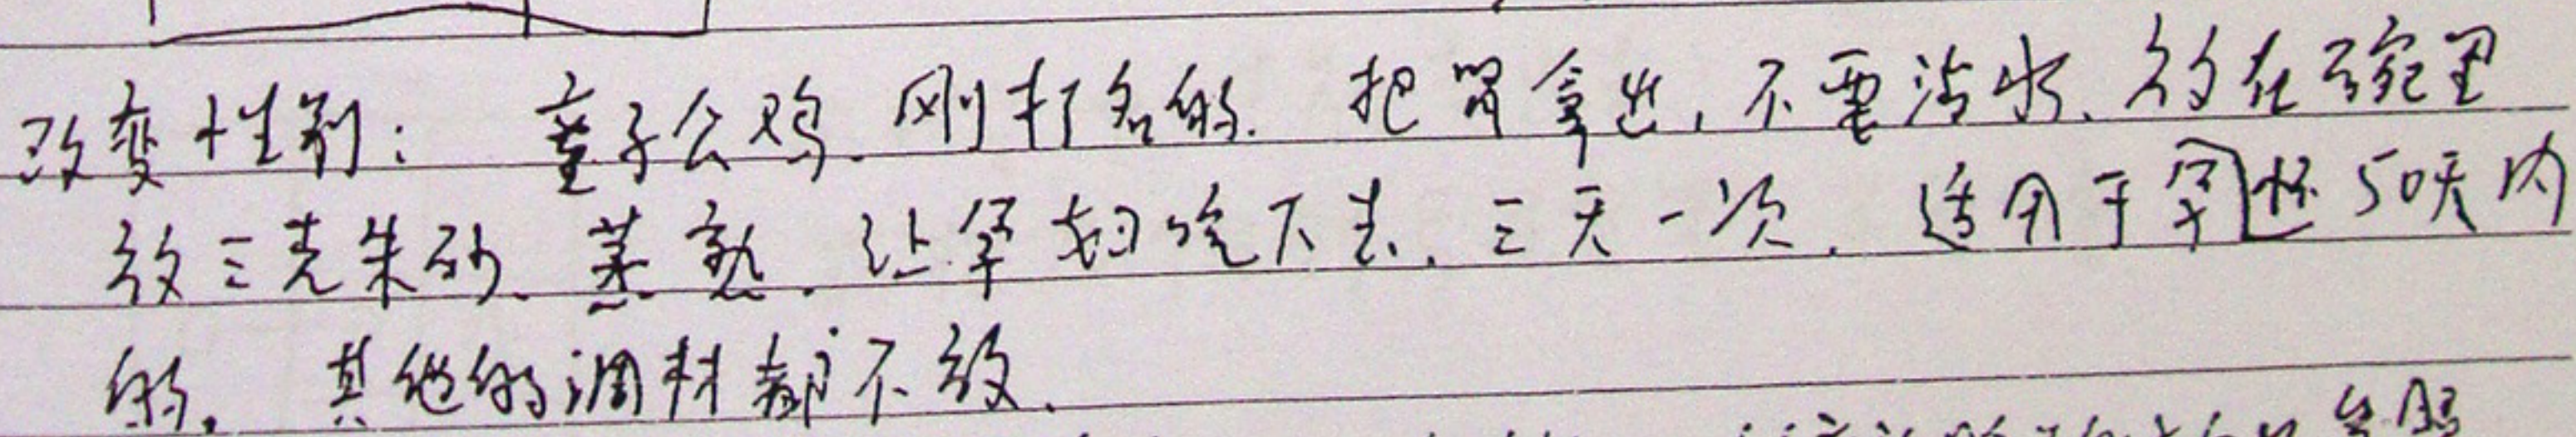 改变性别： 童子公鸡.刚打名的. 把胃拿出，不要沾水.放在碗里
放三克朱砂.蒸熟.让孕妇吃下去.三天一次.适用于孕怀50天内
的。其他的调材都不放.